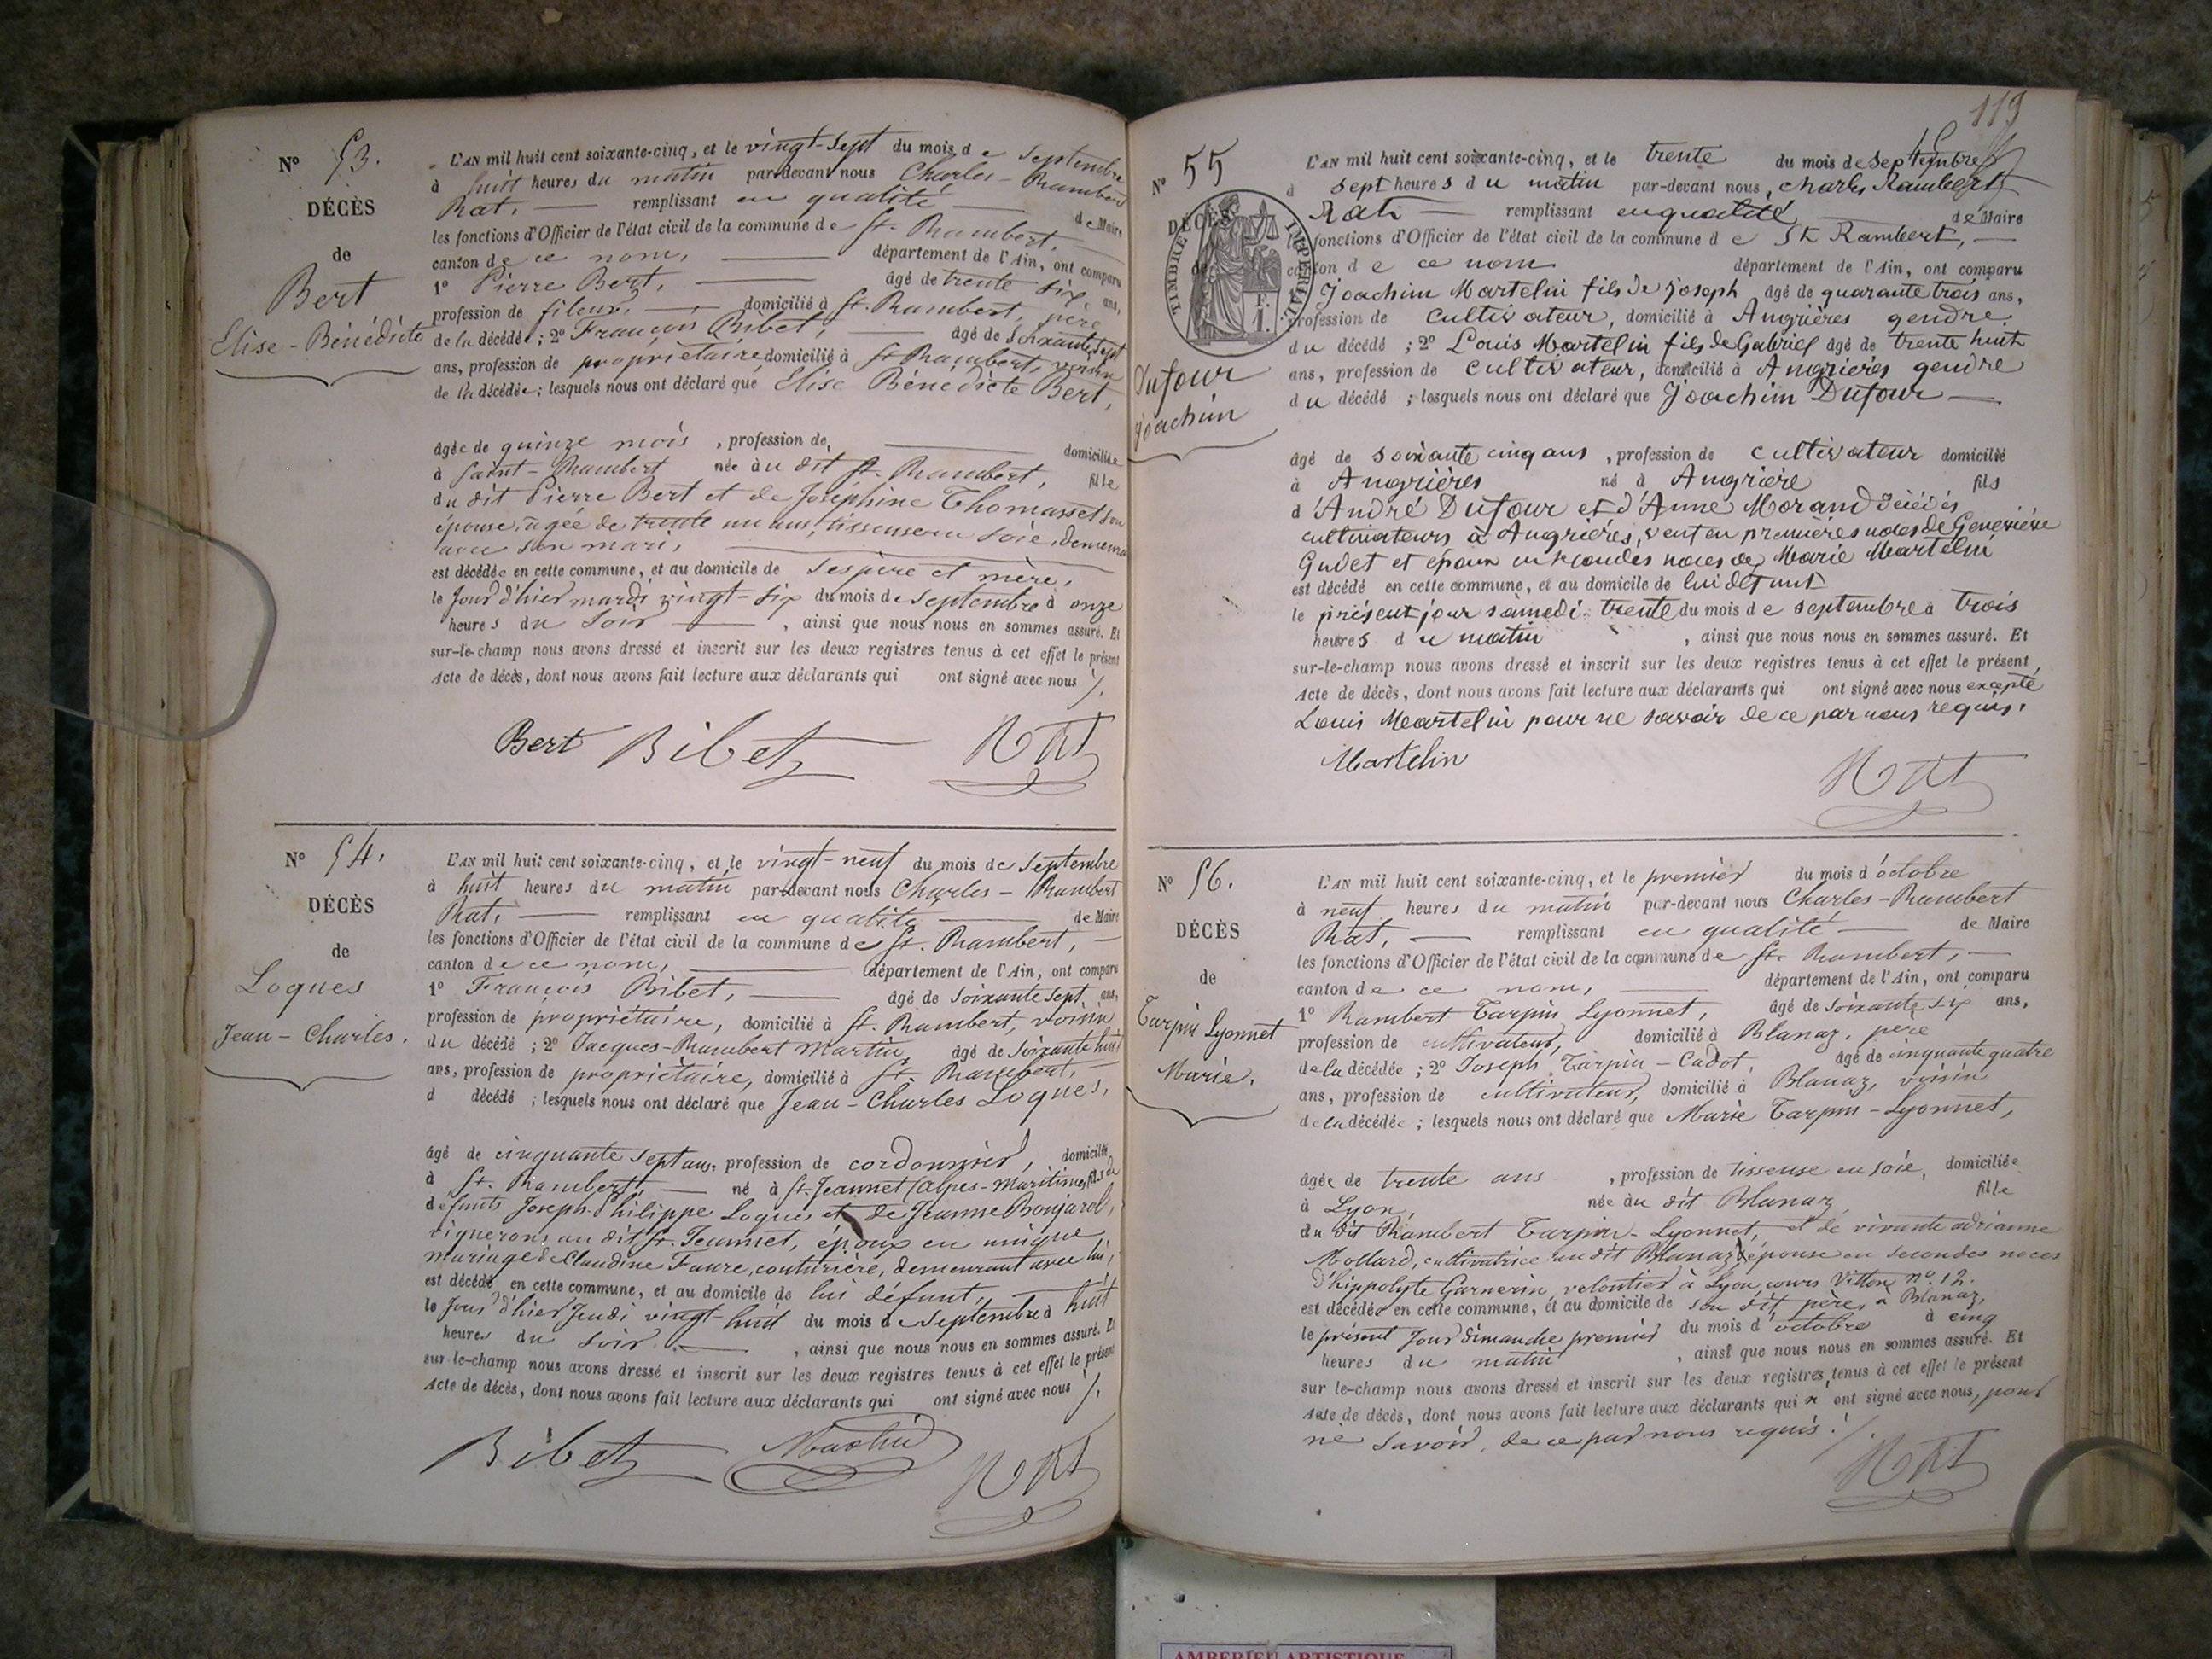 N° 53.
DÉCÈS
de
Bert
Elise-Bénédicte
L'AN mil huit cent soixante-cinq, et le vingt-sept du mois de Septembre
à huit heures du matin par-devant nous Charles-Rambert
Rat, remplissant en qualité de Maire
les fonctions d'Officier de l'état civil de la commune de St. Rambert,
canton de ce nom, département de l'Ain, ont comparu
1° Pierre Bert, âgé de trente six ans,
profession de fileur, domicilié à St. Rambert, père
de la décédée ; 2° François Bibet, âgé de Soixante Sept
ans, profession de propriétaire, domicilié à St Rambert, voisin
de la décédée ; lesquels nous ont déclaré que Elise Bénédicte Bert,
âgée de quinze mois , profession de domiciliée
à Saint-Rambert née au dit St. Rambert, fille
du dit Pierre Bert et de Joséphine Thomasset son
épouse, âgée de trente un ans, tisseuse en soie, demeurant
avec son mari,
est décédée en cette commune, et au domicile de ses père et mère,
le Jour d'hier mardi vingt-six du mois de Septembre à onze
heures du Soir , ainsi que nous nous en sommes assuré. Et
sur-le-champ nous avons dressé et inscrit sur les deux registres tenus à cet effet le présent
Acte de décès, dont nous avons fait lecture aux déclarants qui ont signé avec nous /.
Bert Bibet Rat
N° 54.
DÉCÈS
de
Loques
Jean-Charles.
L'AN mil huit cent soixante-cinq, et le vingt-neuf du mois de Septembre
à huit heures du matin par-devant nous Charles-Rambert
Rat, remplissant en qualité de Maire
les fonctions d'Officier de l'état civil de la commune de St. Rambert,
canton de ce nom, département de l'Ain, ont comparu
1° François Bibet, âgé de soixante sept ans,
profession de propriétaire, domicilié à St. Rambert, voisin
du décédé ; 2° Jacques-Rambert Martin, âgé de soixante huit
ans, profession de propriétaire, domicilié à St. Rambert,
d décédé ; lesquels nous ont déclaré que Jean-Charles Loques,
âgé de cinquante sept ans, profession de cordonnier, domicilié
à St. Rambert né à St. Jeannet (Alpes-Maritimes) fils de
défunts Joseph Philippe Loques et de Jeanne Bonjarel,
vignerons au dit St. Jeannet, époux en unique
mariage de Claudine Faure, couturière, demeurant avec lui,
est décédé en cette commune, et au domicile de lui défunt,
le Jour d'hier Jeudi vingt-huit du mois de Septembre à huit
heures du soir , ainsi que nous nous en sommes assuré. Et
sur-le-champ nous avons dressé et inscrit sur les deux registres tenus à cet effet le présent
Acte de décès, dont nous avons fait lecture aux déclarants qui ont signé avec nous /.
Bibet Martin Rat
119
N° 55
DÉCÈS
de
TIMBRE IMPÉRIAL
1 F.
Dufour
Joachim
L'AN mil huit cent soixante-cinq, et le trente du mois de septembre
à sept heures du matin par-devant nous, Charles Rambert
Rat remplissant en qualité de Maire
les fonctions d'Officier de l'état civil de la commune de St Rambert,
canton de ce nom département de l'Ain, ont comparu
Joachim Martelin fils de Joseph âgé de quarante trois ans,
profession de cultivateur, domicilié à Angrières gendre
du décédé ; 2° Louis Martelin fils de Gabriel âgé de trente huit
ans, profession de cultivateur, domicilié à Angrières gendre
du décédé ; lesquels nous ont déclaré que Joachim Dufour
âgé de soixante cinq ans , profession de cultivateur domicilié
à Angrières né à Angrière fils
d'André Dufour et d'Anne Morand décédés
cultivateurs à Angrières, veuf en premières noces de Geneviève
Gudet et époux en secondes noces de Marie Martelin
est décédé en cette commune, et au domicile de lui défunt
le présent jour samedi trente du mois de septembre à trois
heures du matin , ainsi que nous nous en sommes assuré. Et
sur-le-champ nous avons dressé et inscrit sur les deux registres tenus à cet effet le présent
Acte de décès, dont nous avons fait lecture aux déclarants qui ont signé avec nous excepté
Louis Martelin pour ne savoir de ce par nous requis.
Martelin Rat
N° 56.
DÉCÈS
de
Tarpin Lyonnet
Marie.
L'AN mil huit cent soixante-cinq, et le premier du mois d'octobre
à neuf heures du matin par-devant nous Charles-Rambert
Rat, remplissant en qualité de Maire
les fonctions d'Officier de l'état civil de la commune de St. Rambert,
canton de ce nom, département de l'Ain, ont comparu
1° Rambert Tarpin Lyonnet, âgé de soixante six ans,
profession de cultivateur, domicilié à Blanaz, père
de la décédée ; 2° Joseph Tarpin-Cadot, âgé de cinquante quatre
ans, profession de cultivateur, domicilié à Blanaz, voisin
de la décédée ; lesquels nous ont déclaré que Marie Tarpin-Lyonnet,
âgée de trente ans , profession de tisseuse en soie, domiciliée
à Lyon, née au dit Blanaz, fille
du dit Rambert Tarpin-Lyonnet, et de vivante adrianne
Mollard, cultivatrice au dit Blanaz, épouse en secondes noces
d'hippolyte Garnerin, veloutier à Lyon, cours Vitton n°. 12.
est décédée en cette commune, et au domicile de son dit père, à Blanaz,
le présent Jour dimanche premier du mois d'octobre à cinq
heures du matin , ainsi que nous nous en sommes assuré. Et
sur le-champ nous avons dressé et inscrit sur les deux registres tenus à cet effet le présent
Acte de décès, dont nous avons fait lecture aux déclarants qui n'ont signé avec nous, pour
ne savoir, de ce par nous requis. /.
Rat
AMBERIEU ARTISTIQUE